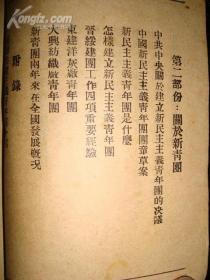 第二部份：關於新青團
中共中央關於建立新民主主義青年團的决議
中國新民主主義青年團團章草案
新民主主義青年團是什麼
怎樣建立新民主主義青年團
晉綏建團工作四項重要經驗
東建洋灰廠青年團
大興紡織廠青年團
新青團兩年來在全國發展概況
附錄